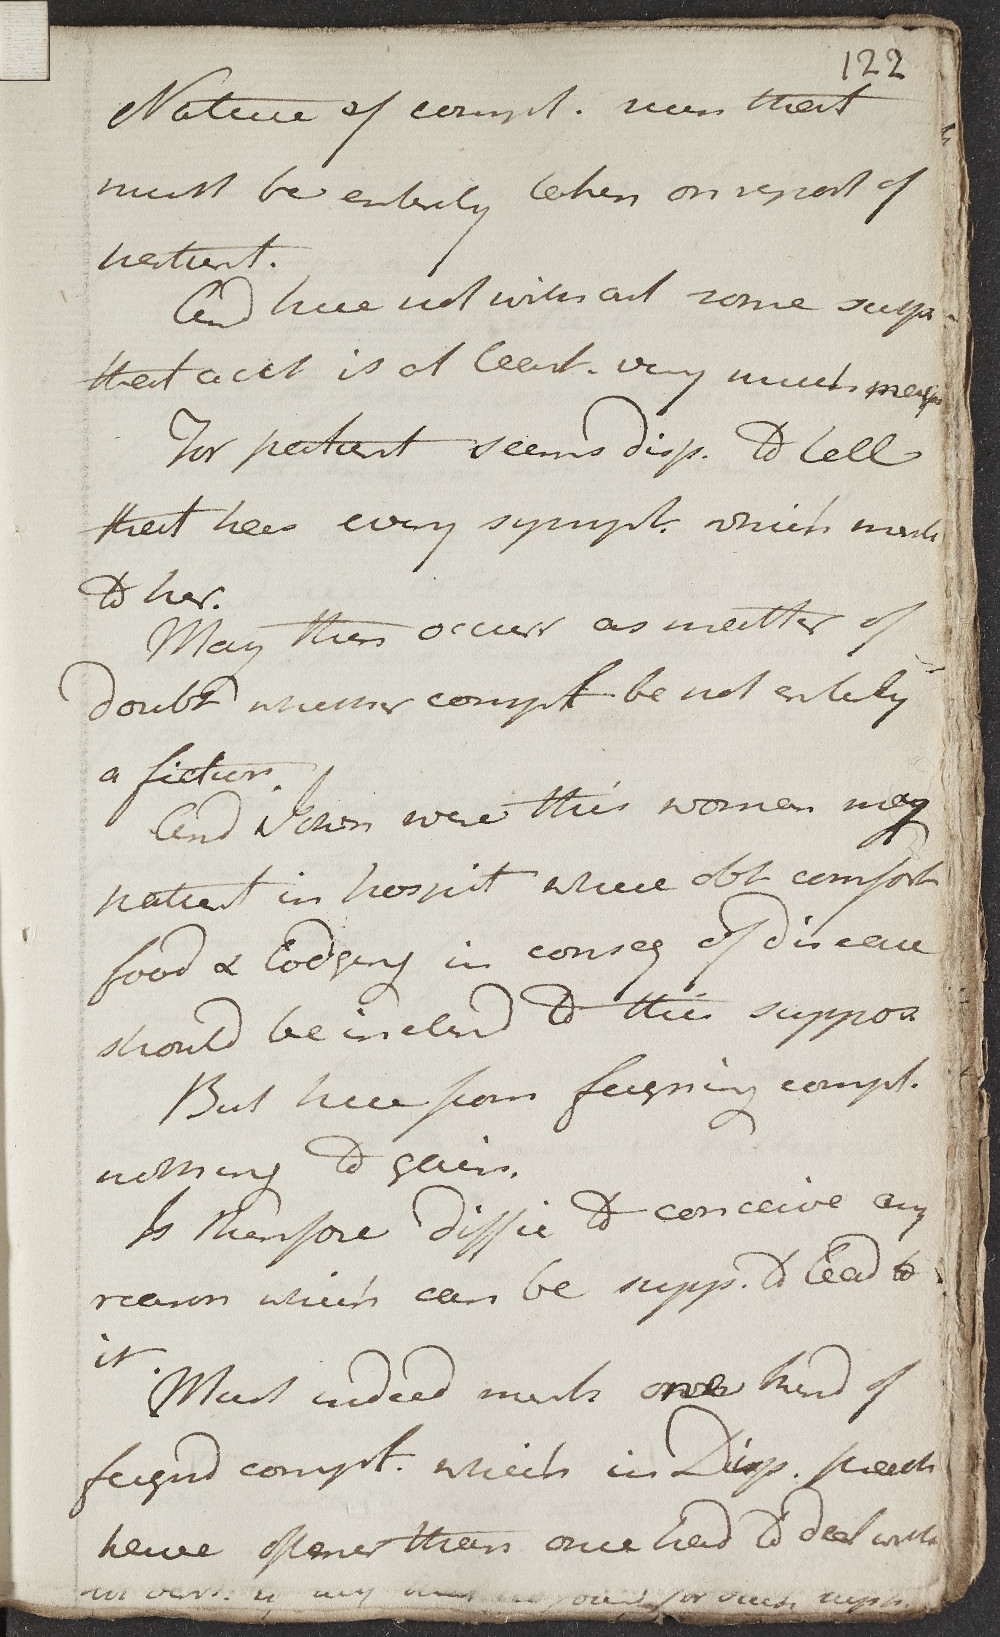 122
Nature of compl. nun that
must be entirely taken on report of
patient.
And here not without some susp
that acct is at least very much magn
For patient seems disp. to tell
that has every sympt. which mark
to her.
May then occurr as matter of
doubt whether compt be not entirely
a fiction.
And I own were this woman may
patient in hospit where obt comfort
food & lodging in conseq of disease
should be inclind to this suppos
But here from feigning compt.
nothing to gain.
Is therefore diffic to conceive any
reason which can be supp. to lead to
it.
Must indeed mark one kind of
feignd compt. which in Disp. pract
have oftener than once had to deal with